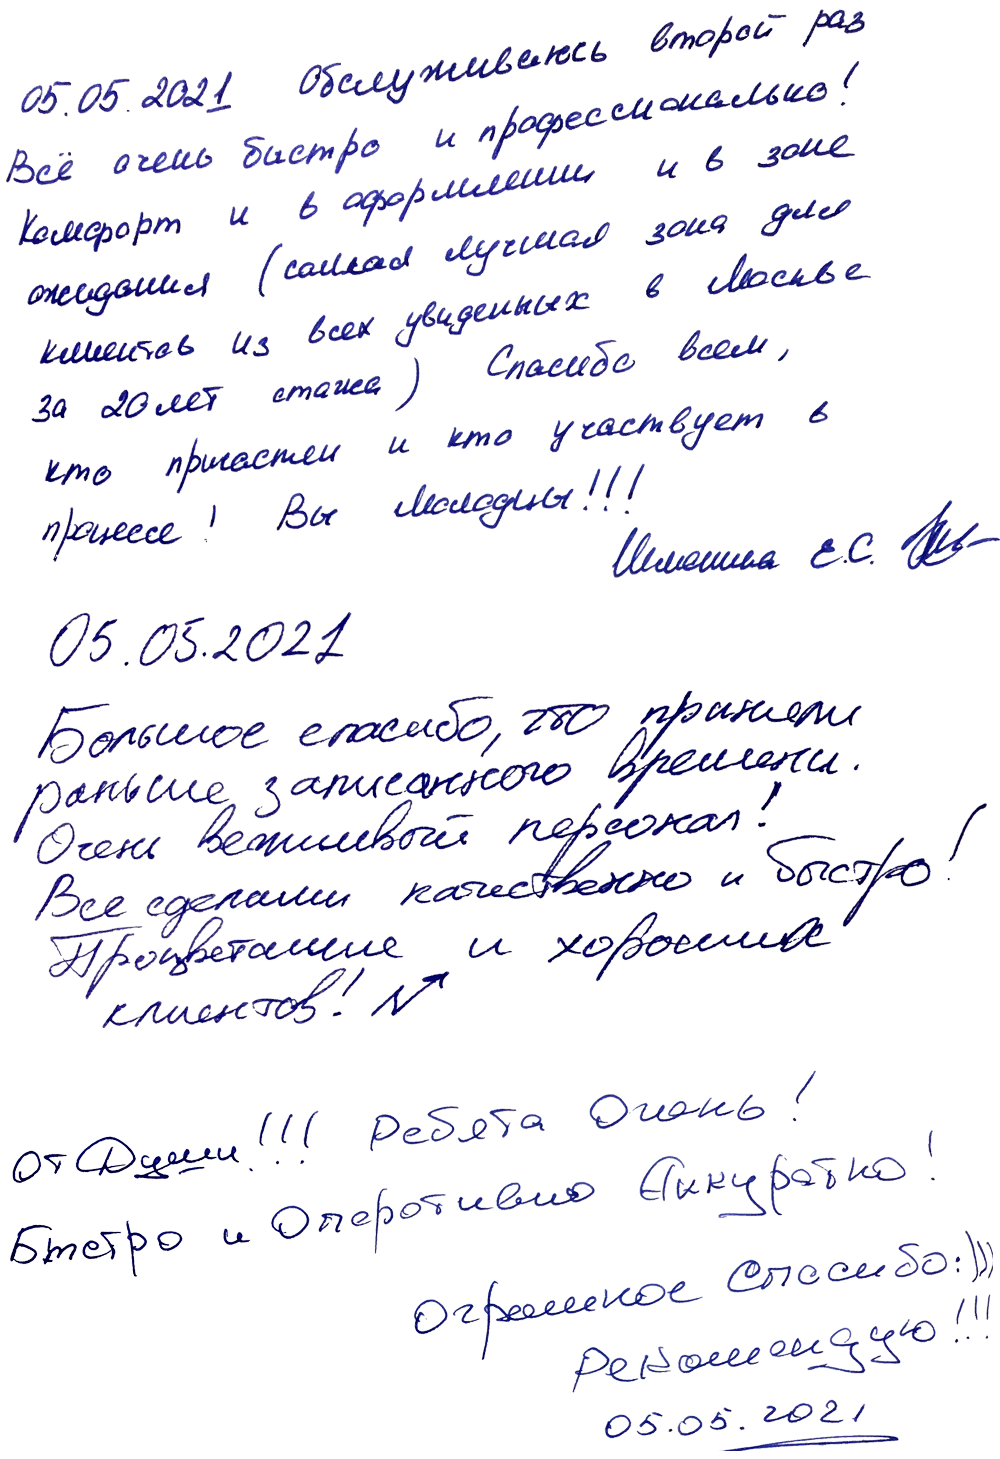 05.05.2021 Обслуживаюсь второй раз
Всё очень быстро и профессионально!
Комфорт и в оформлении и в зоне
ожидания (самая лучшая зона для
клиентов из всех увиденых в Москве
за 20 лет стажа) Спасибо всем,
кто причастен и кто участвует в
процессе! Вы Молодцы!!!
Е.С.
05.05.2021
Большое спасибо, что приняли
раньше записанного времени.
Очень вежливый персонал!
Все сделали качественно и быстро!
Процветание и хороших
клиентов!
От Души!!! Ребята Очень!
Быстро и Оперативно Аккуратно!
Огромное Спасибо:)))
Рекомендую!!!
05.05.2021